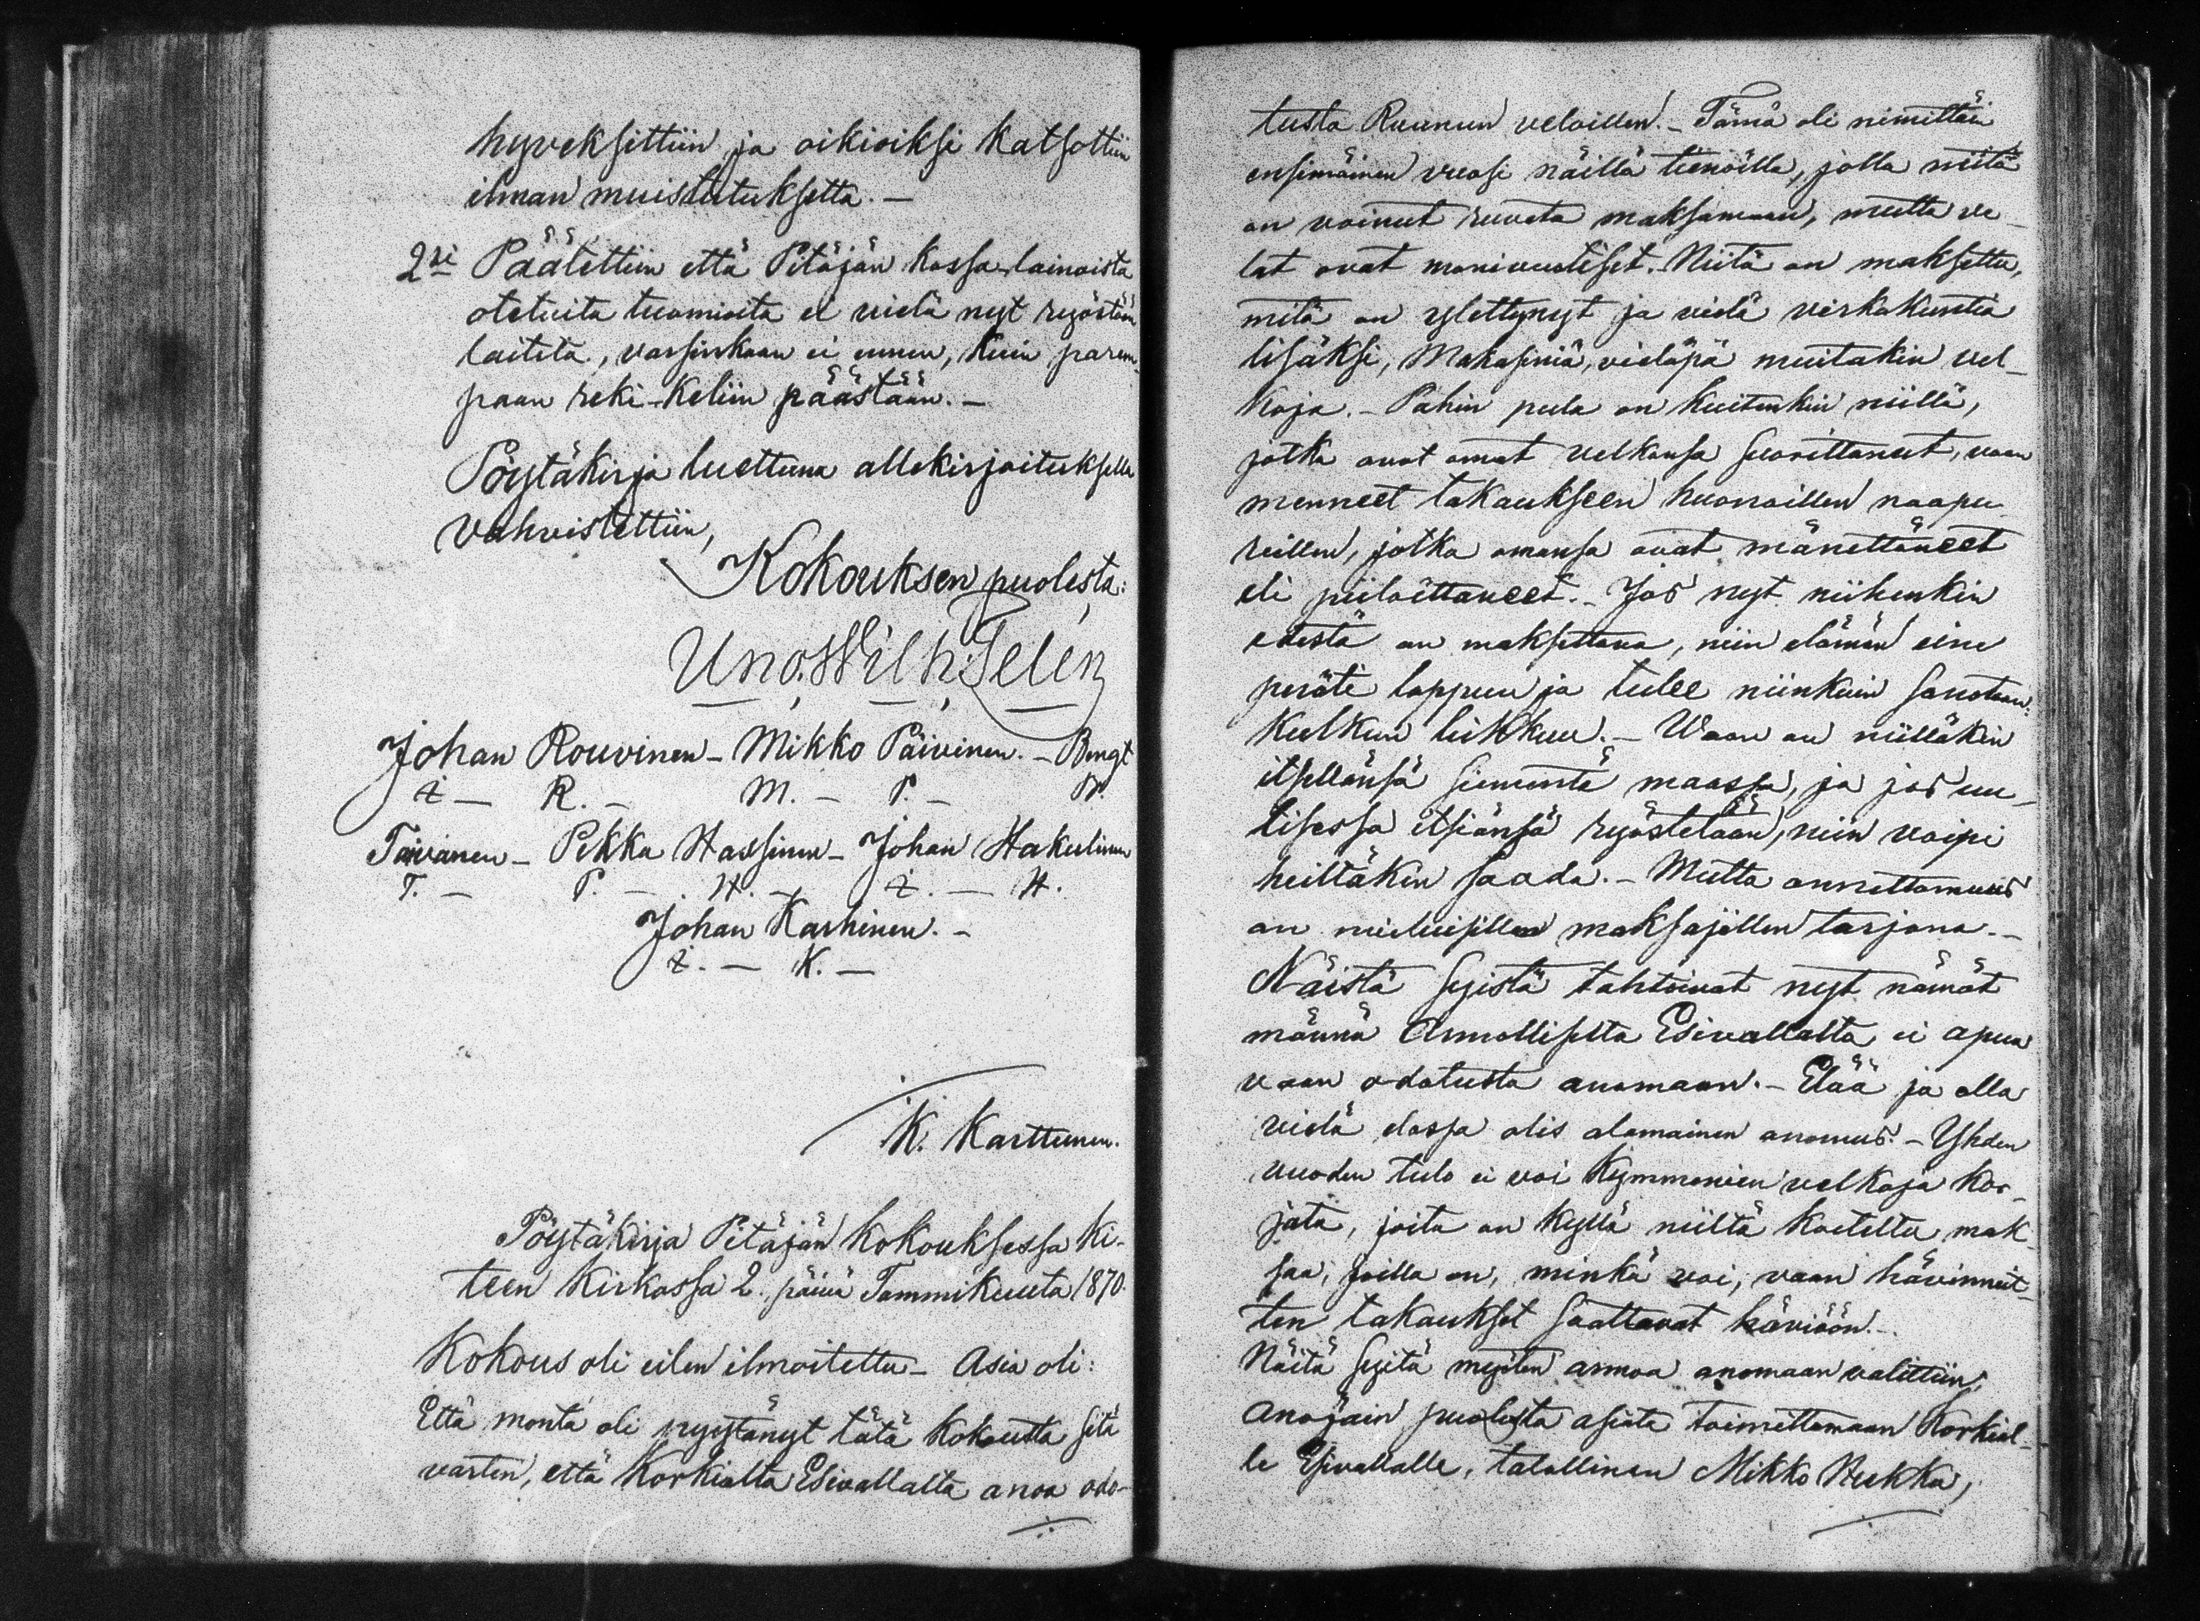 hyveksittiin ja oikioiksi katsottiin
ilman muistutuksetta. —
2si Päätettiin että Pitäjän kassa-lainoista
otetuita tuomioita ei vielä nyt ryöstöön
laiteta, varsinkaan ei ennen, kuin parem-
paan reki-keliin päästään. —
Pöytäkirja luettuna allekirjoituksella
vahvistettiin,
Kokouksen puolesta:
Uno. Wilh: Telén
Johan Rouvinen — Mikko Päivinen. — Bengt
I — R. — M. — P. — B.
Toivanen — Pekka Hassinen — Johan Hakulinen
T. — P. — H. — I. — H.
Johan Karhinen. —
I. — K. —
K. Karttunen.
Pöytäkirja Pitäjän kokouksessa Ki-
teen Kirkossa 2. päivä Tammikuuta 1870.
Kokous oli eilen ilmoitettu — Asia oli:
Että monta oli pyytänyt tätä kokousta sitä
varten, että Korkialta Esivallalta anoa odo-
tusta Ruunun veloillen. — Tämä oli nimittäin
ensimäinen vuosi näillä tienoilla, jolla niitä
on voinut ruveta maksamaan, mutta ve-
lat ovat monivuotiset. Niitä on maksettu,
mitä on ylettynyt ja vielä virkakuntia
lisäksi, Makasiniä, vieläpä muitakin vel-
koja. — Pahin pula on kuitenkin niillä,
jotka ovat omat velkansa suorittaneet, vaan
menneet takaukseen huonoillen naapu
reillen, jotka omansa ovat mänettäneet
eli piiloittaneet. — Jos nyt niihenkin
edestä on maksettava, niin elämän eine
peräti loppuu ja tulee niinkuin sanotaan:
kulkun liikkuu. — Waan on niilläkin
itsellänsä siementä maassa, ja jos uu-
tisessa itsiänsä ryöstetään, niin voipi
heiltäkin saada. — Mutta onnettomuus
on mieluisillen maksajillen tarjona. —
Näistä syistä tahtoivat nyt nämät
männä Armolliselta Esivallalta ei apua
vaan odotusta anomaan. — Elää ja olla
vielä elossa olis alamainen anomus. — Yhden
vuoden tulo ei voi kymmenien velkoja kor-
jata, joita on kyllä niiltä koeteltu mak-
saa, joilla on, minkä voi, vaan hävinneit-
ten takaukset saattavat häviöön. —
Näitä syitä myöten armoa anomaan valittiin
anojain puolesta asiata toimittamaan Korkial-
le Esivallalle, talollinen Mikko Nukka,